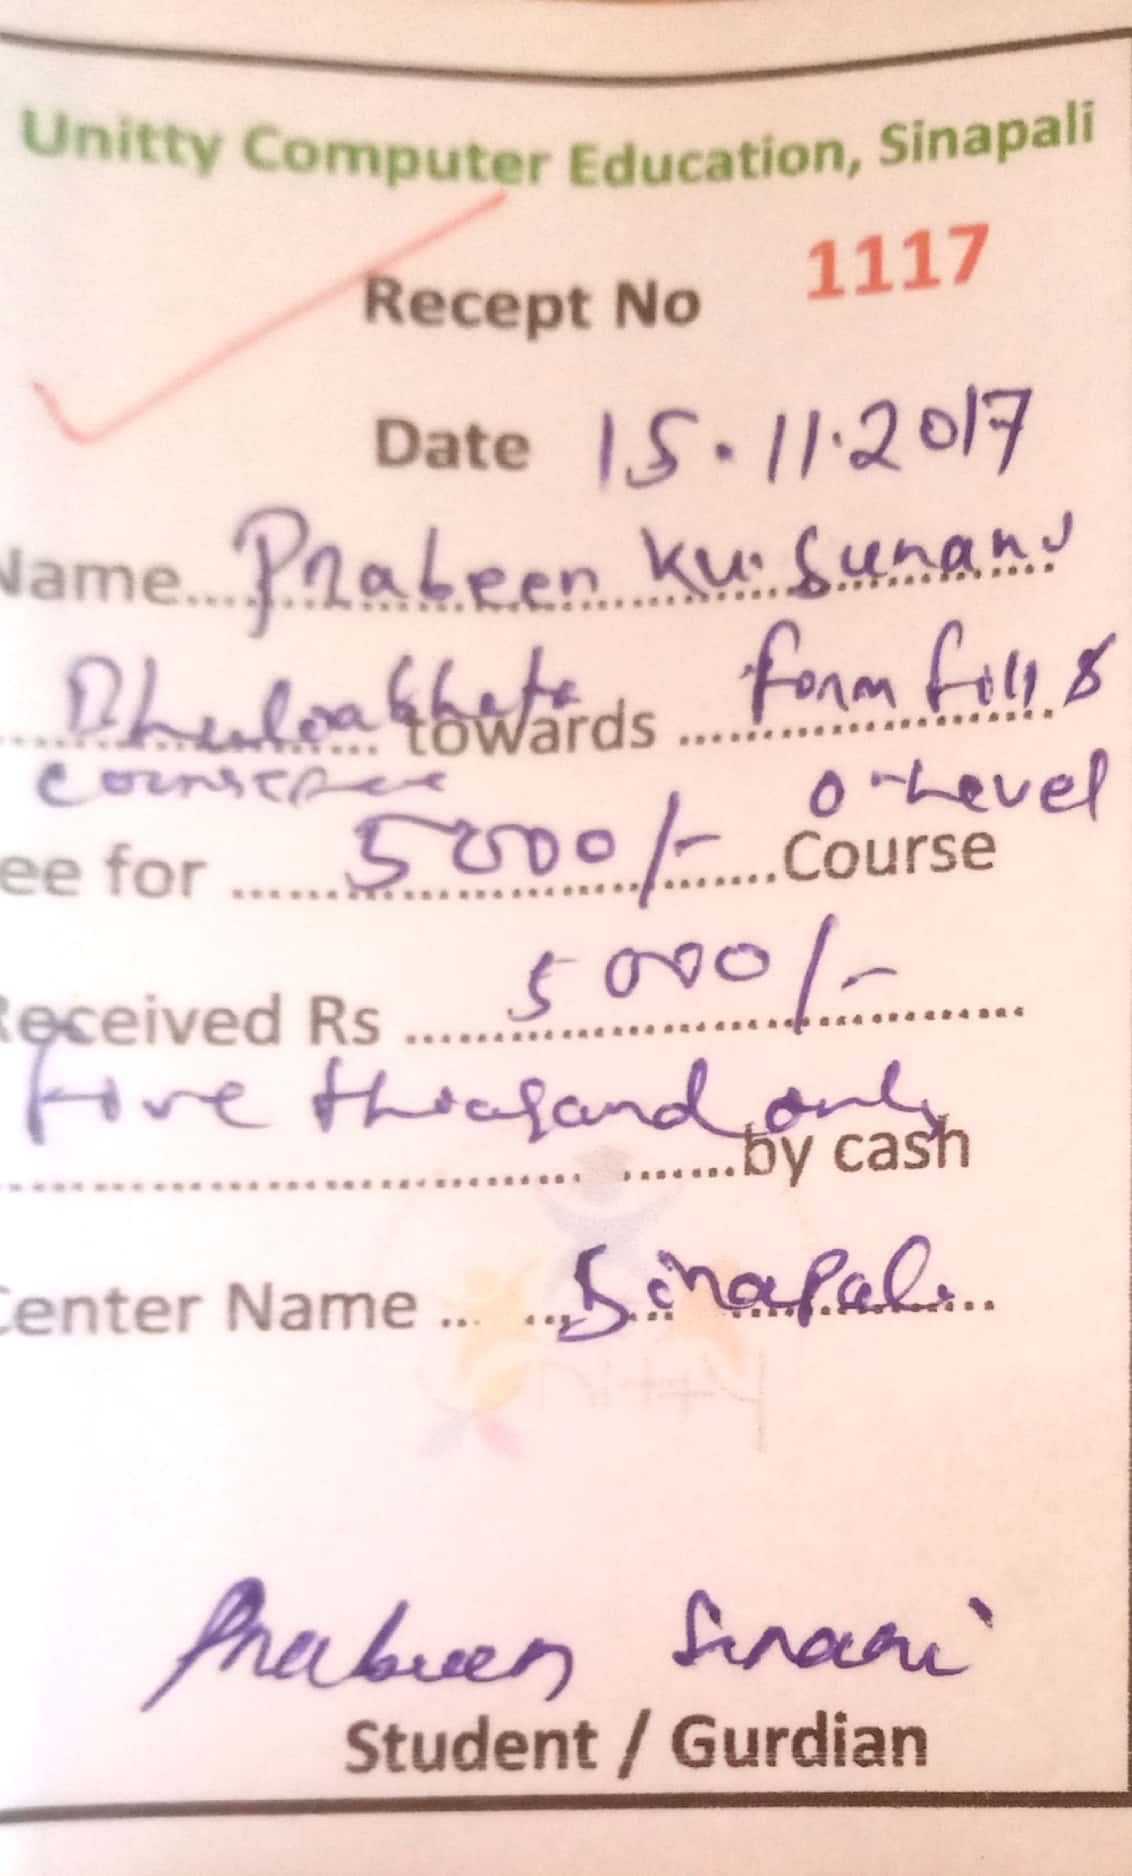 Unitty Computer Education, Sinapali
Recept No 1117
Date 15.11.2017
Name.... Prabeen Ku. Sunani
........ towards form fill &
O-Level
ee for ...... 5000/- .......Course
Received Rs ..... 5000/- .....
Five thousand only
.......by cash
Center Name ... Sinapali
Prabeen Sunani
Student / Gurdian